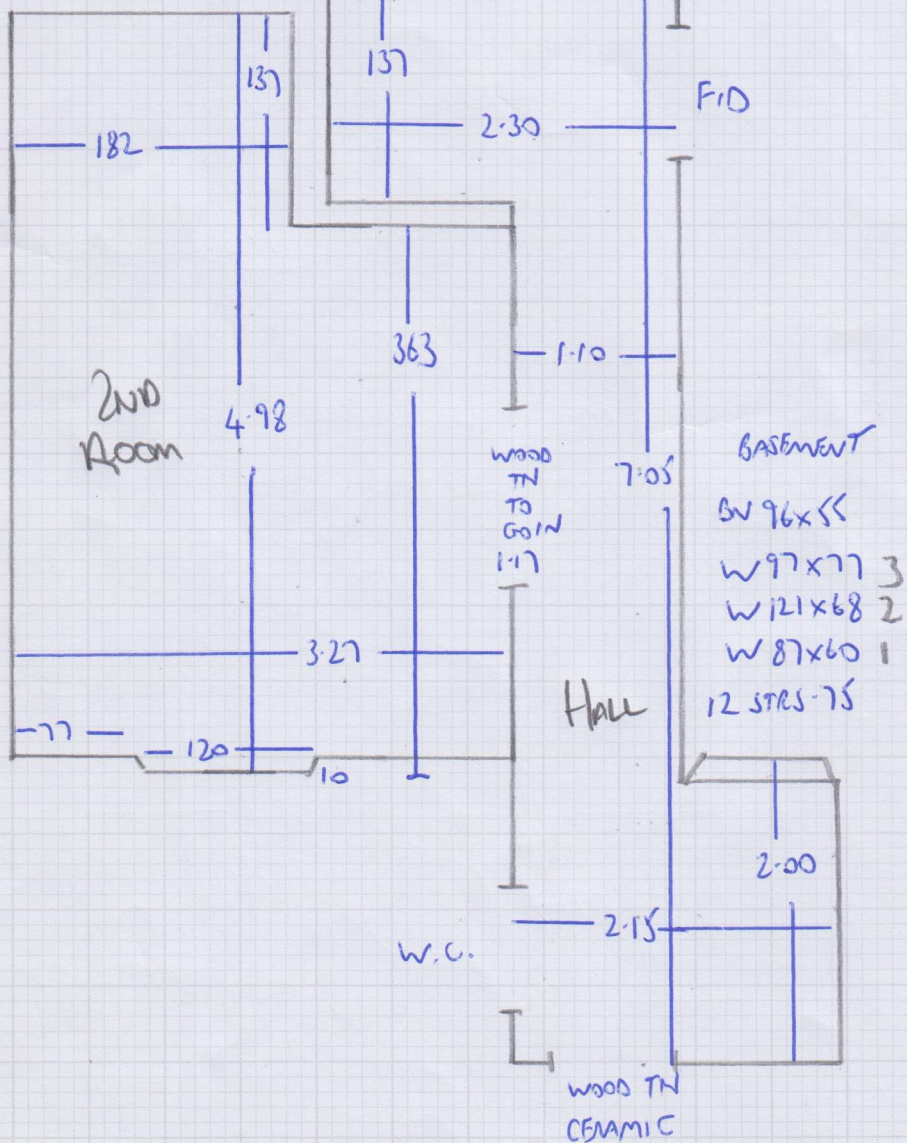 137
137
F/D
2.30
182
363
1.10
2ND
ROOM
4.98
WOOD
TN
TO
GO IN
1.17
7.05
BASEMENT
BN 96x55
W 97x77 3
W 121x68 2
W 87x60 1
12 STRS-75
3.27
HALL
77
120
10
2.00
2.15
W.C.
WOOD TN
CERAMIC